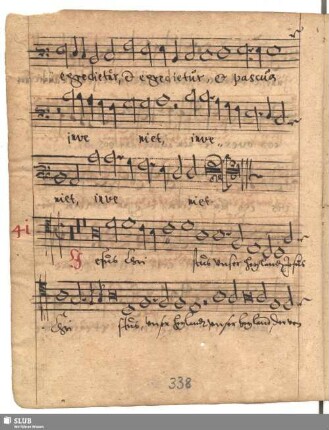 egredietur, & egredietur, & pascua
inve niet, inve
niet, inve niet
41
Jesus Chri stus unser heyland, Jesus
Chri stus, unser heyland, unser heyland, der von
338
SLUB
Wir führen Wissen.